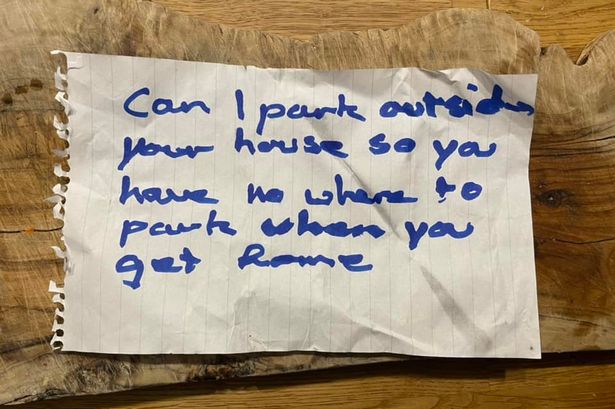 Can I park outside
your house so you
have no where to
park when you
get home